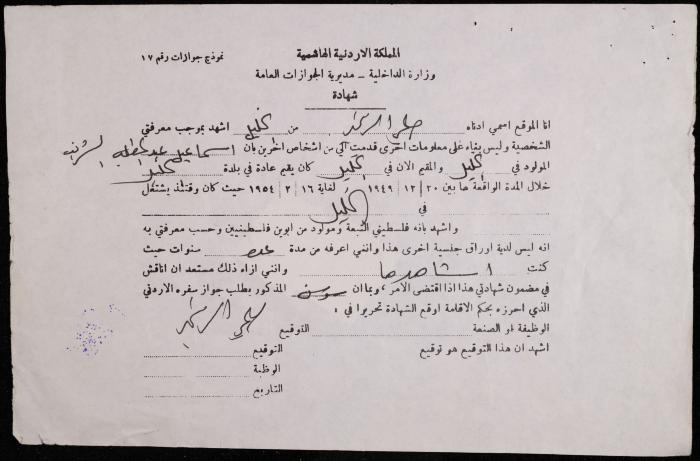 المملكة الاردنية الهاشمية
نموذج جوازات رقم ١٧
وزارة الداخلية - مديرية الجوازات العامة
شهادة
انا الموقع اسمي ادناه من الخليل اشهد بموجب معرفتي
الشخصية وليس بناء على معلومات اخرى قدمت الي من اشخاص اخرين بان اسماعيل
المولود في الخليل والمقيم الان في الخليل كان يقيم عادة في بلدة الخليل
خلال المدة الواقعة ما بين ٢٠ / ١٢ / ١٩٤٩ لغاية ١٦ / ٢ / ١٩٥٤ حيث كان وقتئذ يشتغل
في الخليل
واشهد بانه فلسطيني التبعة ومولود من ابوين فلسطينيين وحسب معرفتي به
انه ليس لدية اوراق جنسية اخرى هذا وانني اعرفه من مدة سنوات حيث
كنت اشاهدها وانني ازاء ذلك مستعد ان اناقش
في مضمون شهادتي هذا اذا اقتضى الامر، وبما ان المذكور يطلب جواز سفره الاردني
الذي احرزه بحكم الاقامة اوقع الشهادة تحريرا في :
الوظيفة او الصنعة التوقيع
اشهد ان هذا التوقيع هو توقيع التوقيع
الوظبة
التاريخ